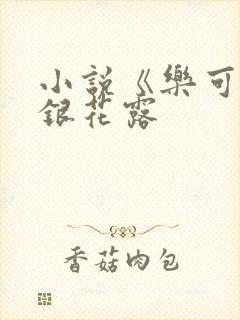 小說《樂可
銀花露
香菇肉包